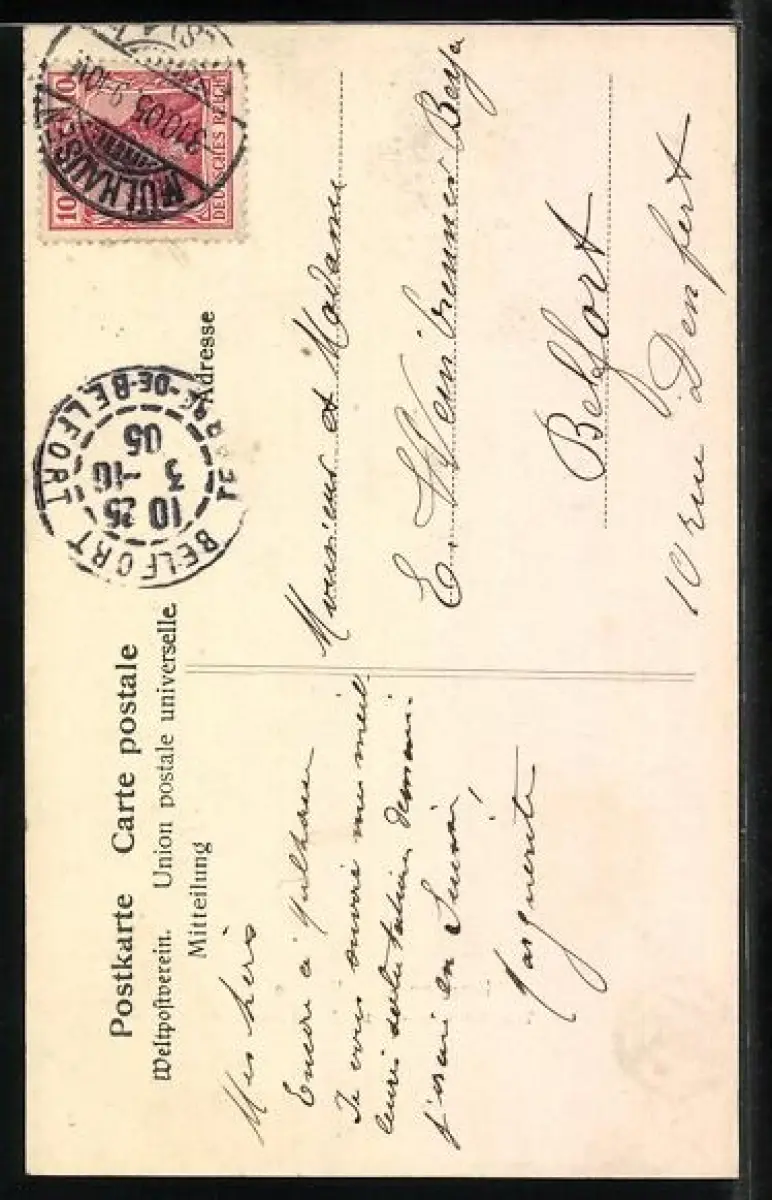 Postkarte Carte postale
Weltpostverein. Union postale universelle.
Mitteilung
Adresse
Mes chéris
Encore à Mulhouse
Je vous envoie mes meil-
leures salutations demain
j'irai en Suisse,
Marguerite
Monsieur et Madame
E. Weinbrenner
Belfort
10 rue Denfert
10 10
DEUTSCHES REICH
MÜLHAUSEN
3.10.05 9-10N
BELFORT
10 25
3 -10
05
TERRE-DE-BELFORT